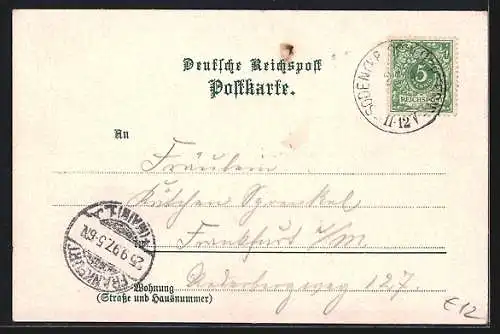 Deutsche Reichspost
Postkarte.
5
REICHSPOST
11-12 V
An
Fräulein
Käthchen Sprenkel
Frankfurt a/M
127.
FRANKFURT (MAIN) 1.
25.9.97. 5-6N
Wohnung
(Straße und Hausnummer)
€12